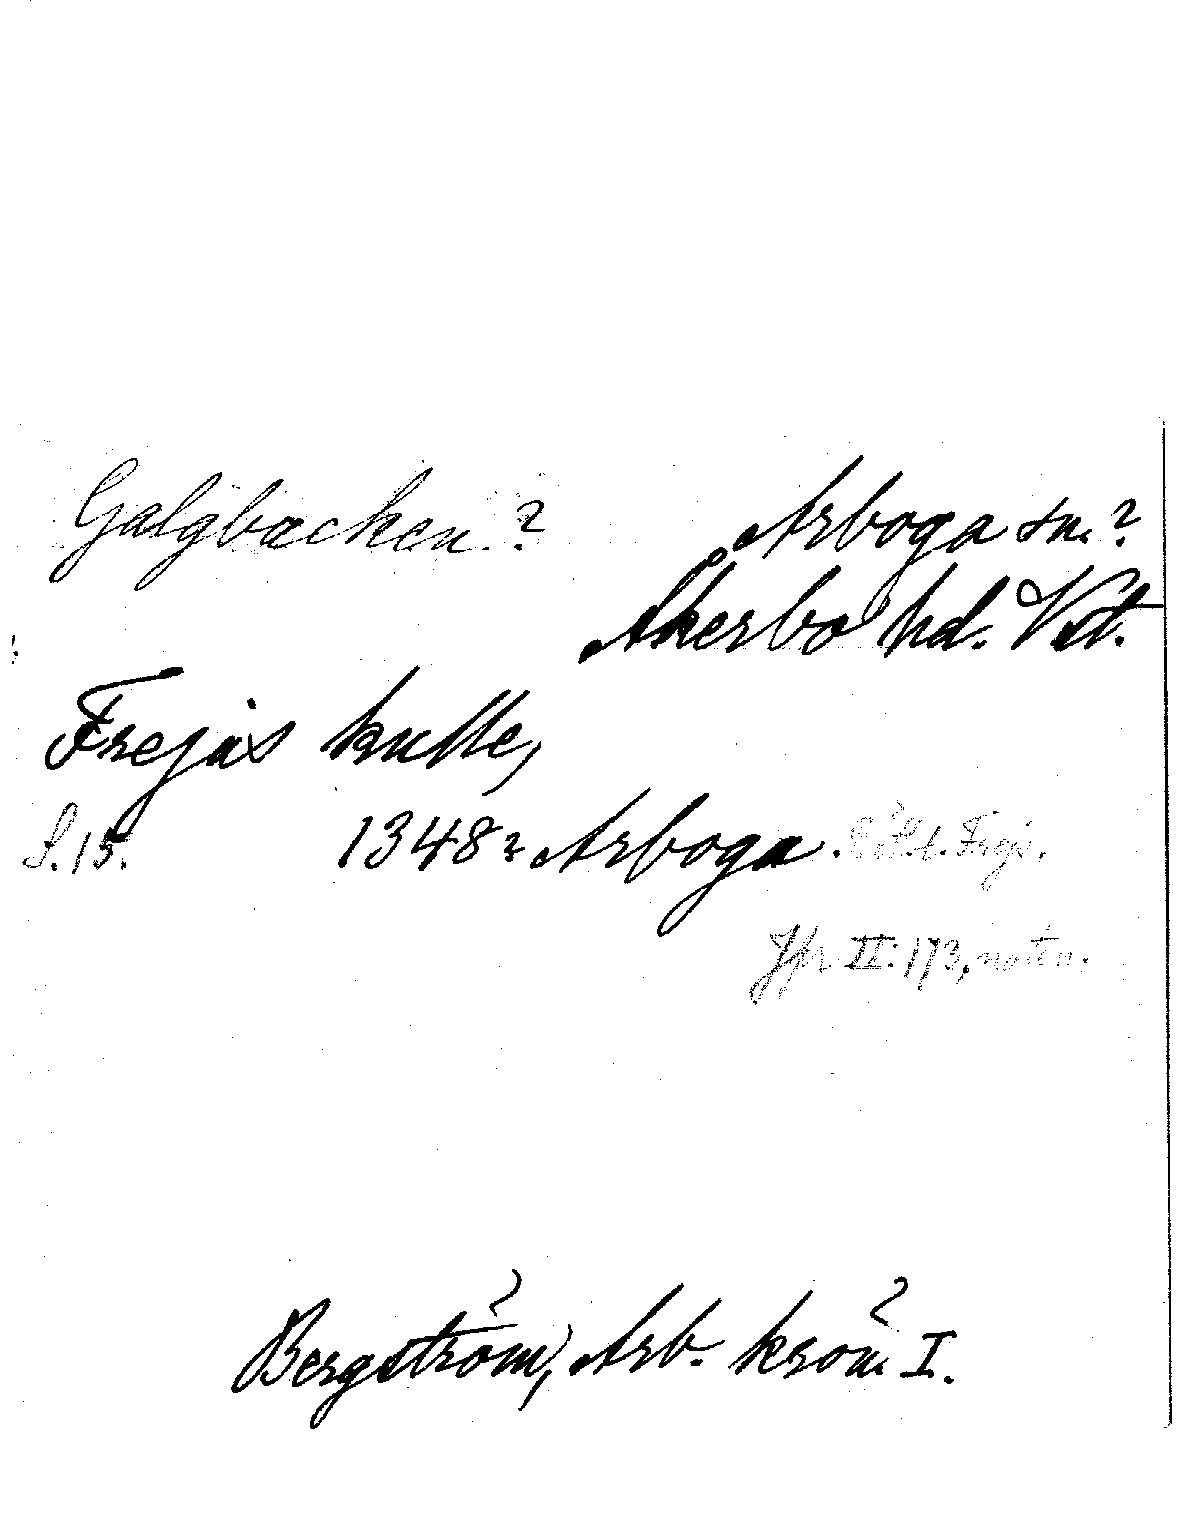 Galgbacken? Arboga sn.?
Åkerbo hd. Vstm.
Frejas kulle,
S. 15. 1348? Arboga.
Jfr II: 173, noten.
Bergström, Arb. krön. I.